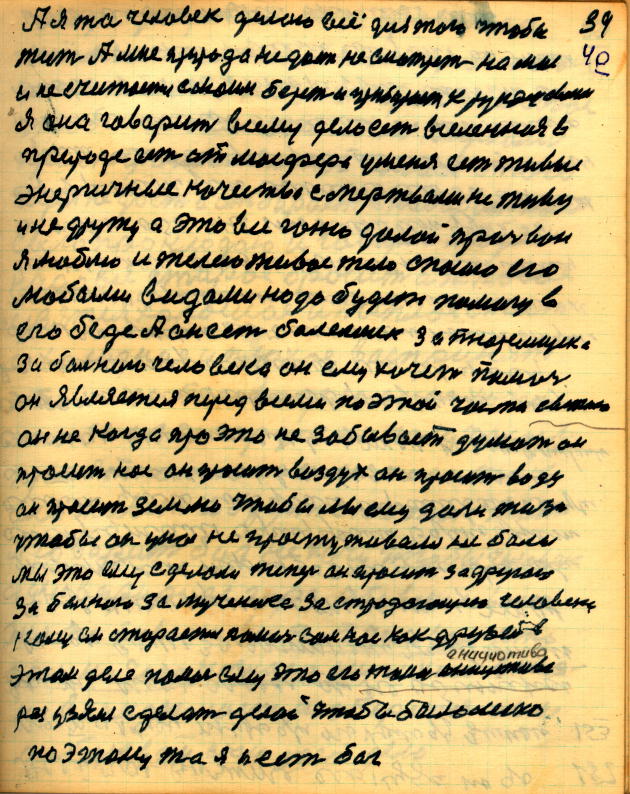 А я та человек делаю всё для того чтоба 39
жит А мне природа недает не смотрет на мы 40
и не считается самом берет и
Я она говарит всему дело сет вселенная в
природе ест атмосфера уменя ест живые
энергичные качества с мертвами не живу
и не дружу а это все гоню далой проч вон
я люблю и желею живое тело спасаю его
любыми видами надо будет помагу в
его беде А он сет болелшик за
за болного человека он ему хочет помоч
он является перед всеми по этой части
он не когда про это не забывает думает он
просит нас он просит воздух он просит воду
он просит землю чтобы мы ему дали
чтобы он у нас не простуживался не болел
мы это ему сделали тепер он просит за другого
за болного за мученика за страдающию человека
кому он старается помоч сам нас как друзей в
анициотива
этом деле помоч ему это его
раз узяли сделат делай чтобы было легко
по этому та я и ест бог